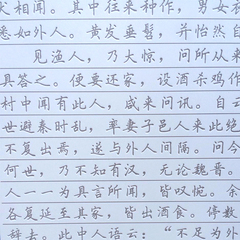 犬相闻。其中往来种作，男女衣
悉如外人。黄发垂髫，并怡然自
见渔人，乃大惊，问所从来
具答之。便要还家，设酒杀鸡作
村中闻有此人，咸来问讯。自云
世避秦时乱，率妻子邑人来此绝
不复出焉，遂与外人间隔。问今
何世，乃不知有汉，无论魏晋。
人一一为具言所闻，皆叹惋。余
各复延至其家，皆出酒食。停数
辞去。此中人语云：“不足为外